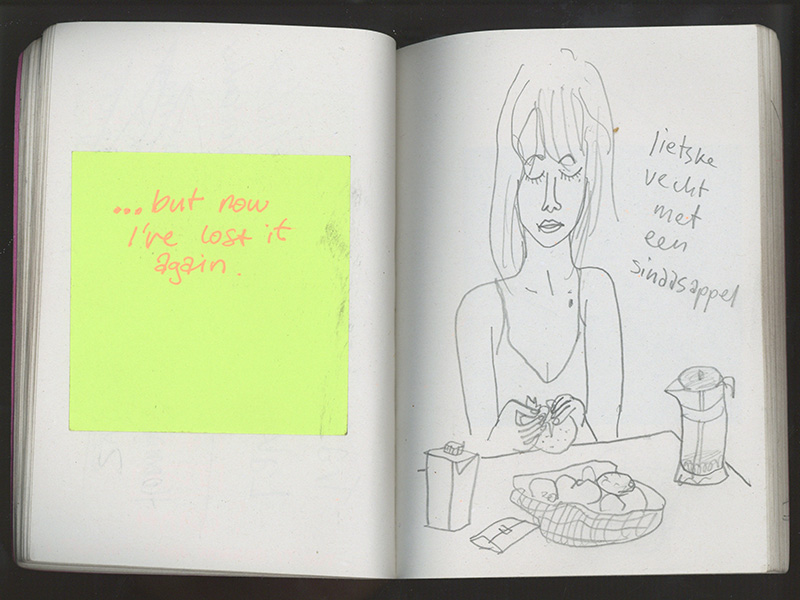 ...but now
I've lost it
again.
lietske
vecht
met
een
sinaasappel